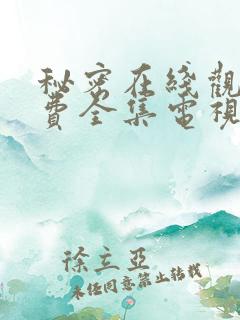 秘密在綫觀
費全集電視
徐立亞
未經同意禁止轉載